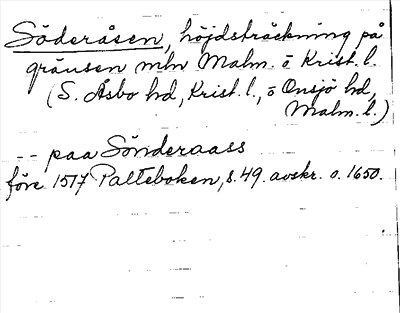 Söderåsen, höjdsträckning på
gränsen mln Malm. o Krist. l.
(S. Åsbo hd, Krist. l., o Onsjö hd,
Malm. l.)
-- paa Sönderaass
före 1517 Palteboken, s. 49. avskr. o. 1650.